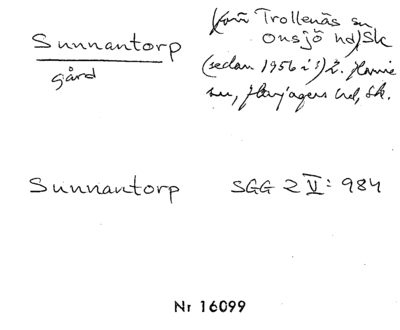 Sunnantorp
gård
Trollenäs sn
Onsjö hd, Sk
(sedan 1956 i Ö.
sn, hd, Sk.
Sunnantorp SGG 2 V: 984
Nr 16099